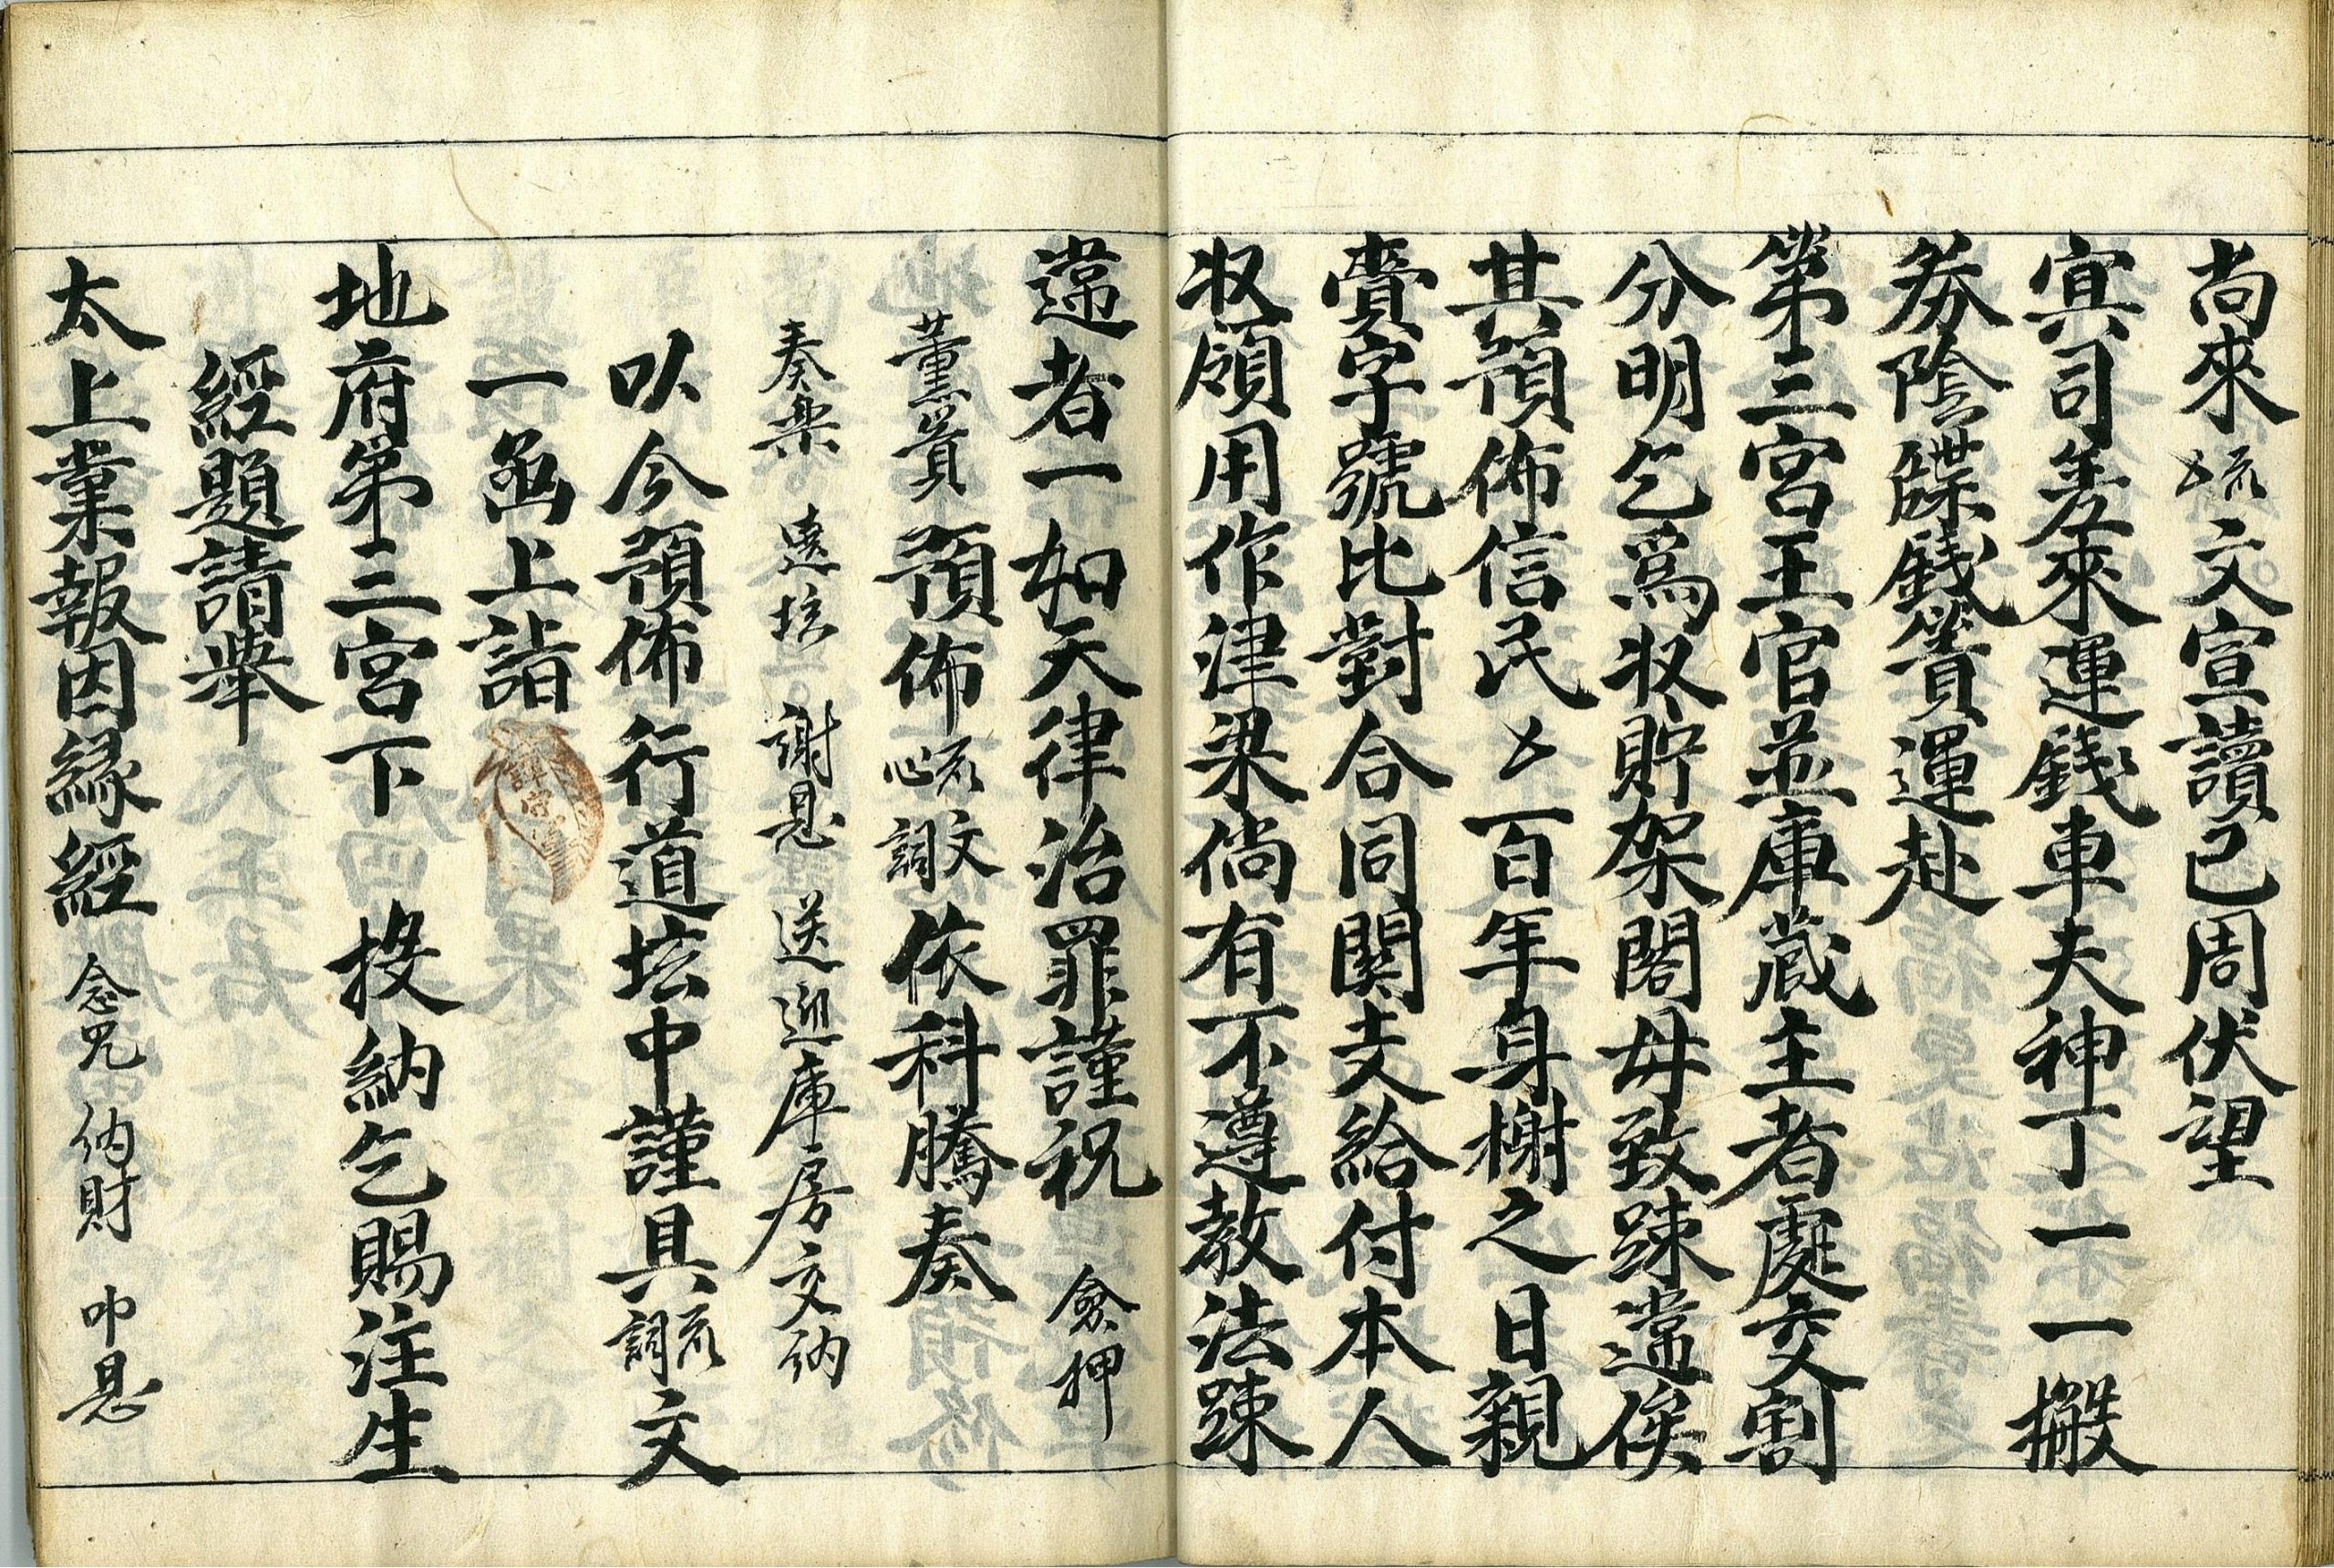 尚來㐅疏文宣讀已周伏望
㝠司差來運錢車夫神丁一一搬
劵陰牒錢簣運赴
第三宮王官並庫蔵主者處交割
分明乞爲収貯架閣毋致踈違俟
其預佈信民㐅百年身榭之日親
賷字號比對合同関支給付本人
収領用作津梁倘有不遵教法踈
違者一如天律治罪謹祝 僉押
薰賷預佈疏文心詞依科騰奏
奏樂 遶坛 謝恩 送迎庫房交納
以今預佈行道坛中謹具疏詞文
一函上詣
地府第三宮下 投納乞賜注生
經題請舉
太上業報因縁經 念咒 納財 叩恩